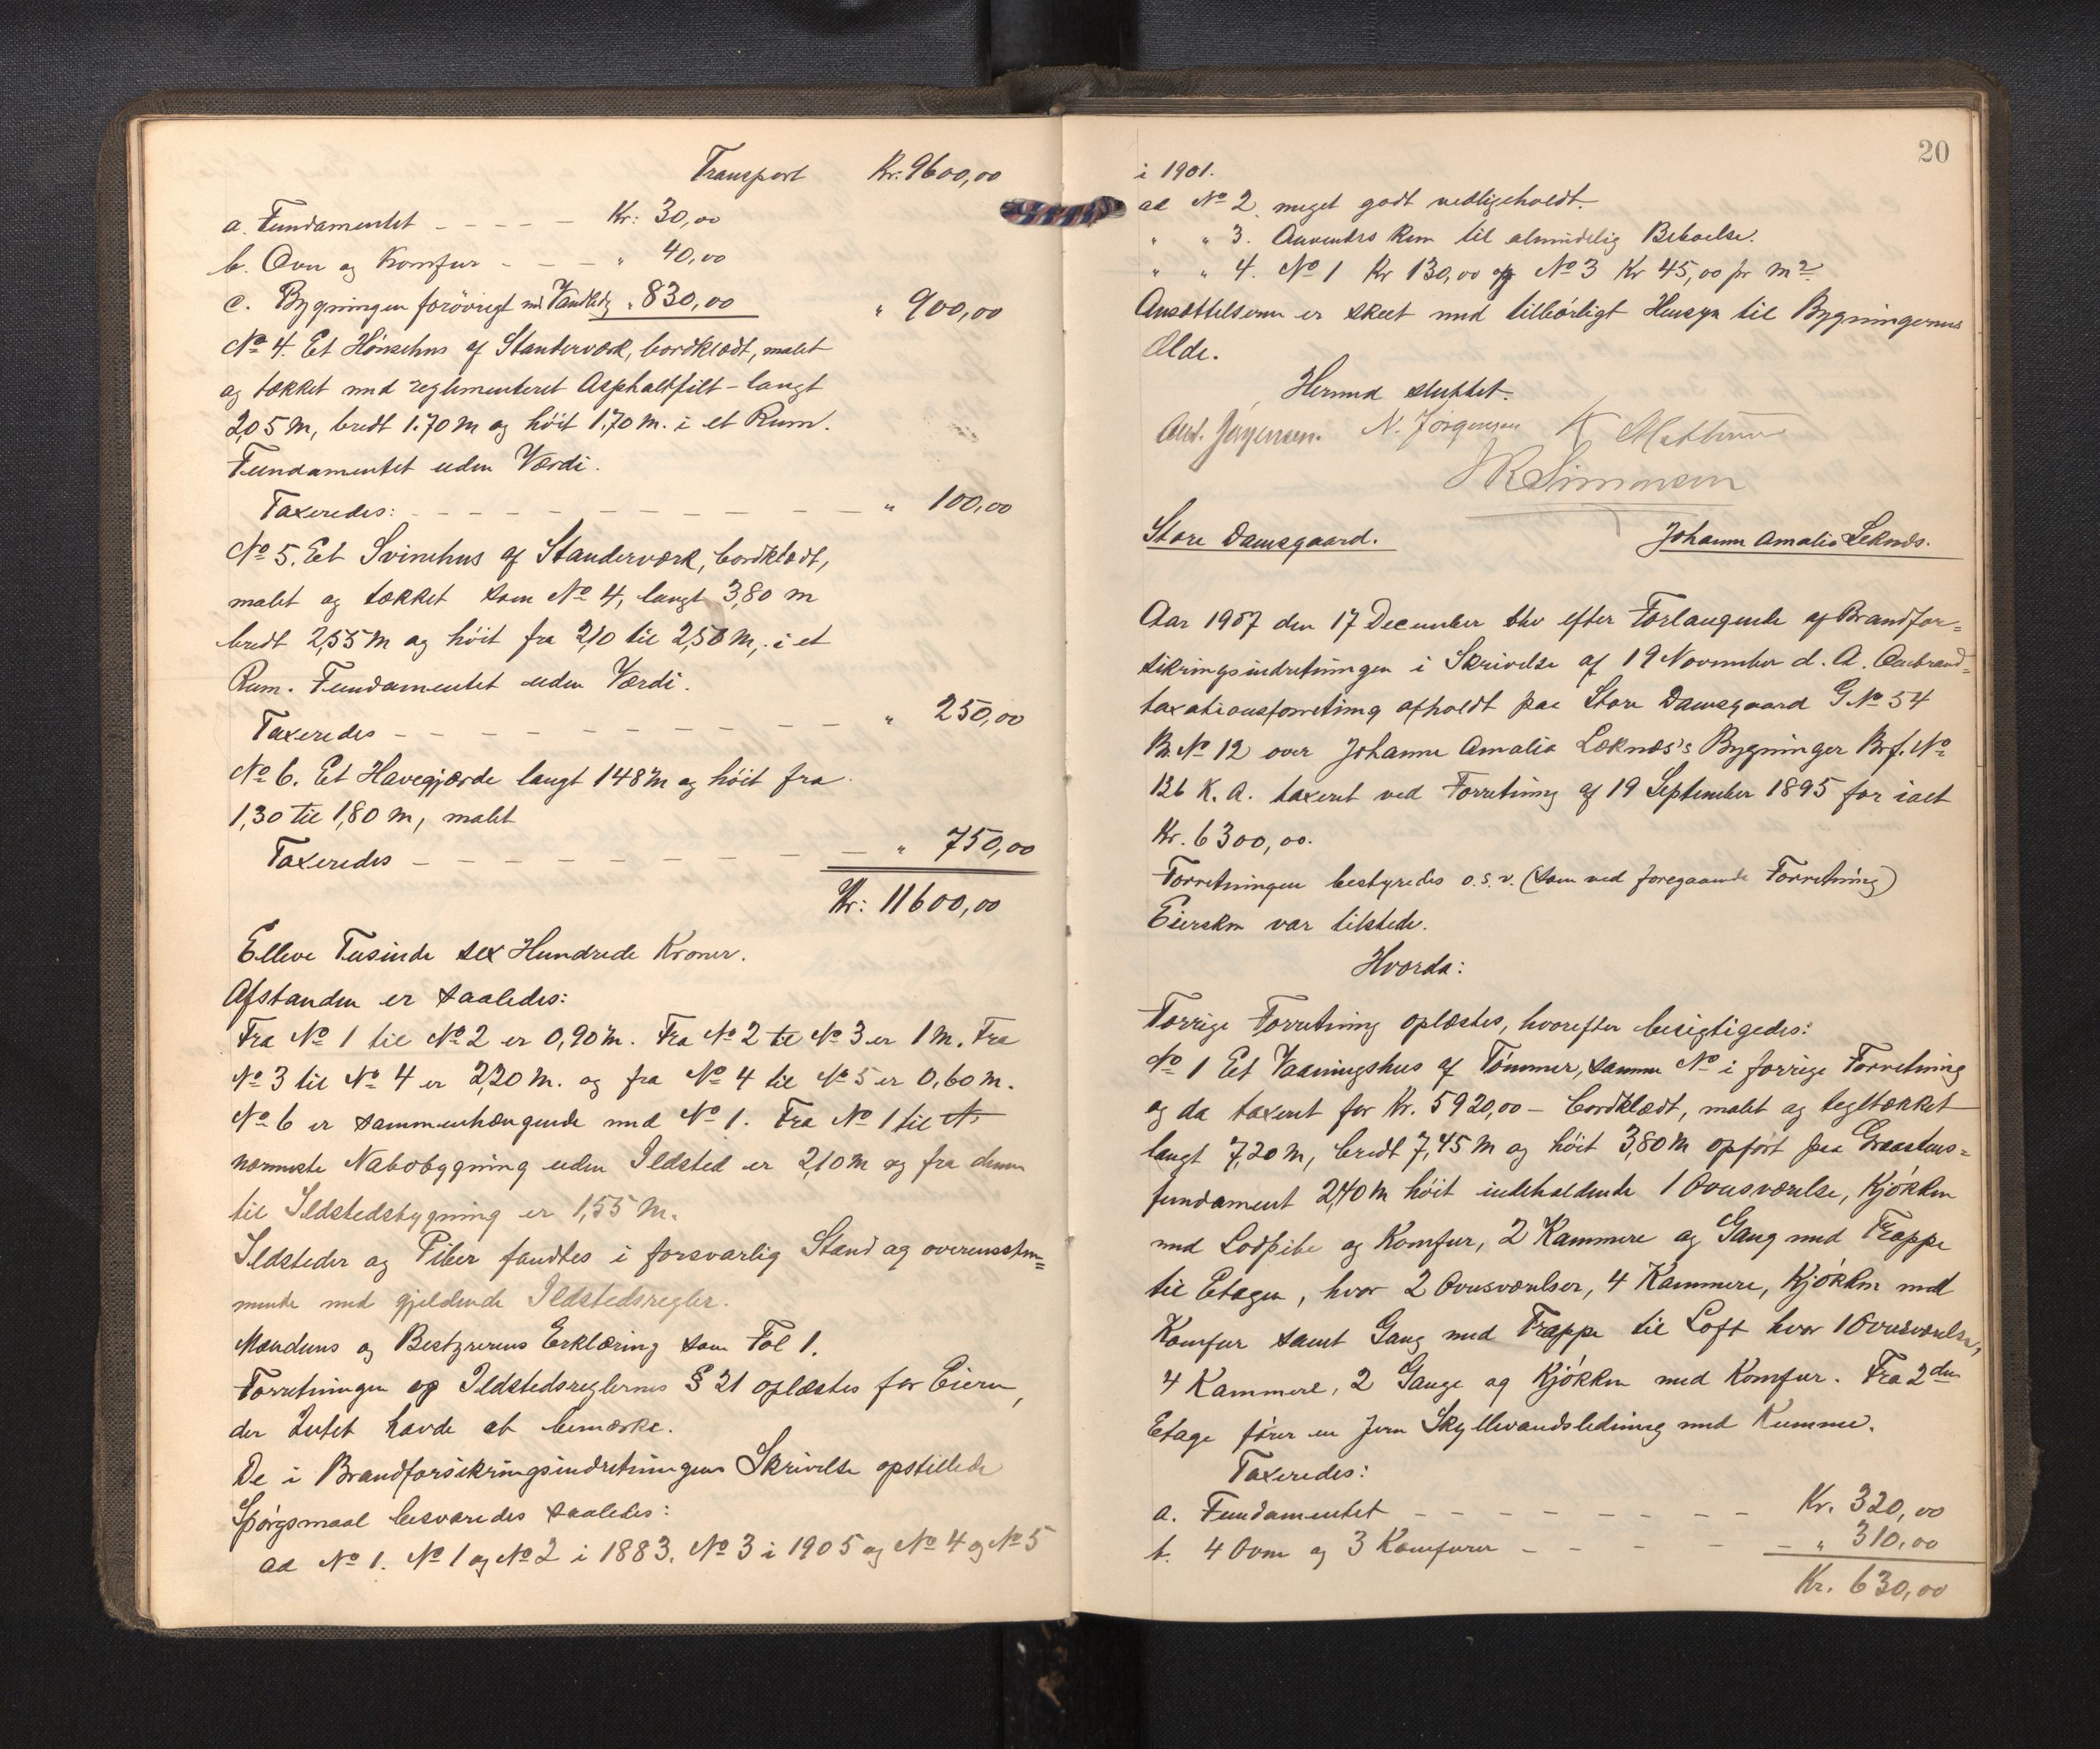 Transport Kr. 9600,00
a. Fundamentet - - - - Kr: 30,00
b. Ovn og Komfur - - - " 40,00
c. Bygningen forøvrigt m. Vandledg " 830,00 " 900,00
No 4. Et Hönsehus af Standerværk, bordklædt, malet
og tækket med reglementeret Asphaltfilt - langt
2,05 M, bredt 1.70 M og höit 1,70 M. i et Rum.
Fundamentet uden Værdi.
Taxeredes: - - - - - - - - - - " 100,00
No 5. Et Svinehus af Standerværk, bordklædt,
malet og tækket som No 4, langt 3,80 m
bredt 2,55 M og höit fra 2,10 til 2,50 M, i et
Rum. Fundamentet uden Værdi.
Taxeredes - - - - - - - - " 250,00
No 6. Et Havegjærde langt 148 M og höit fra
1,30 til 1,80 M, malet
Taxeredes - - - - - - - - - " 750,00
Kr: 11600,00
Elleve Tusinde sex Hundrede Kroner.
Afstanden er saaledes:
Fra No 1 til No 2 er 0,90 m. Fra No 2 til No 3 er 1 M. Fra
No 3 til No 4 er 2,20 M. og fra No 4 til No 5 er 0,60 M.
No 6 er sammenhængende med No 1. Fra No 1 til
nærmeste Nabobygning uden Ildsted er 2,10 M og fra denne
til Ildstedsbygning er 1,55 M.
Ildsteder og Piber fandtes i forsvarlig Stand og overensstem=
mende med gjeldende Ildstedsregler.
Mændenes og Bestyrerens Erklæring som Fol 1.
Forretningen og Ildstedsreglernes § 21 oplæstes for Eieren,
der Intet havde at bemærke.
De i Brandforsikringsindretningens Skrivelse opstillede
Spörgsmaal besvaredes saaledes:
ad No 1. No 1 og No 2 i 1883, No 3 i 1905 og No 4 og No 5
20
i 1901.
ad No 2. meget godt vedligeholdt.
" " 3. Anvendes kun til almindelig Beboelse.
" " 4. No 1 Kr 130,00 og No 3 Kr 45,00 pr m2
Ansættelserne er skeet med tilbörligt Hensyn til Bygningernes
Ælde.
Hermed sluttet.
Ant. Jørgensen. N. Jørgensen K
Simonsen
Store Damsgaard. Johanne Amalie Leknæs.
Aar 1907 den 17 December blev efter Forlangende af Brandfor=
sikringsindretningen i Skrivelse af 19 November d. A. Ombrand=
taxationsforretning afholdt paa Store Damsgaard G No 54
B. No 12 over Johanne Amalie Leknæs's Bygninger Brf. No
126 K. A. taxeret ved Forretning af 19 September 1895 for ialt
Kr. 6300,00.
Forretningen bestyredes o.s.v. (som ved foregaaende Forretning)
Eiersken var tilstede.
Hvorda:
Forrige Forretning oplæstes, hvorefter besigtigedes:
No 1 Et Vaaningshus af Tömmer, samme No i forrige Forretning
og da taxeret for Kr. 5920,00 - bordklædt, malet og tegltækket
langt 7,20 M, bredt 7,45 M og höit 3,80 M opfört paa Graastens=
fundament 2,40 M höit indeholdende 1 Ovnsværelse, Kjökken
med Lodpibe og Komfur, 2 Kammere og Gang med Trappe
til Etagen, hvor 2 Ovnsværelser, 4 Kammere, Kjökken med
Komfur samt Gang med Trappe til Loft hvor 1 Ovnsværelse,
4 Kammere, 2 Gange og Kjökken med Komfur. Fra 2den
Etage förer en Jern Skyllevandsledning med Kumme.
Taxeredes:
a. Fundamentet - - - - - - - - Kr. 320,00
b. 4 Ovne og 3 Komfurer - - - - - " 310,00
Kr. 630,00